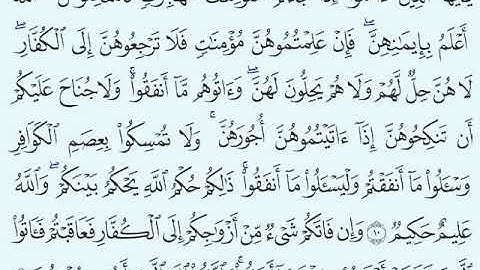 أَعْلَمُ بِإِيمَـٰنِهِنَّ ۖ فَإِنْ عَلِمْتُمُوهُنَّ مُؤْمِنَـٰتٍ فَلَا تَرْجِعُوهُنَّ إِلَى ٱلْكُفَّارِ ۖ
لَا هُنَّ حِلٌّ لَّهُمْ وَلَا هُمْ يَحِلُّونَ لَهُنَّ ۖ وَءَاتُوهُم مَّآ أَنفَقُوا۟ ۚ وَلَا جُنَاحَ عَلَيْكُمْ
أَن تَنكِحُوهُنَّ إِذَآ ءَاتَيْتُمُوهُنَّ أُجُورَهُنَّ ۚ وَلَا تُمْسِكُوا۟ بِعِصَمِ ٱلْكَوَافِرِ
وَسْـَٔلُوا۟ مَآ أَنفَقْتُمْ وَلْيَسْـَٔلُوا۟ مَآ أَنفَقُوا۟ ۚ ذَٰلِكُمْ حُكْمُ ٱللَّهِ يَحْكُمُ بَيْنَكُمْ ۖ وَٱللَّهُ
عَلِيمٌ حَكِيمٌ ١٠ وَإِن فَاتَكُمْ شَىْءٌ مِّنْ أَزْوَٰجِكُمْ إِلَى ٱلْكُفَّارِ فَعَاقَبْتُمْ فَـَٔاتُوا۟